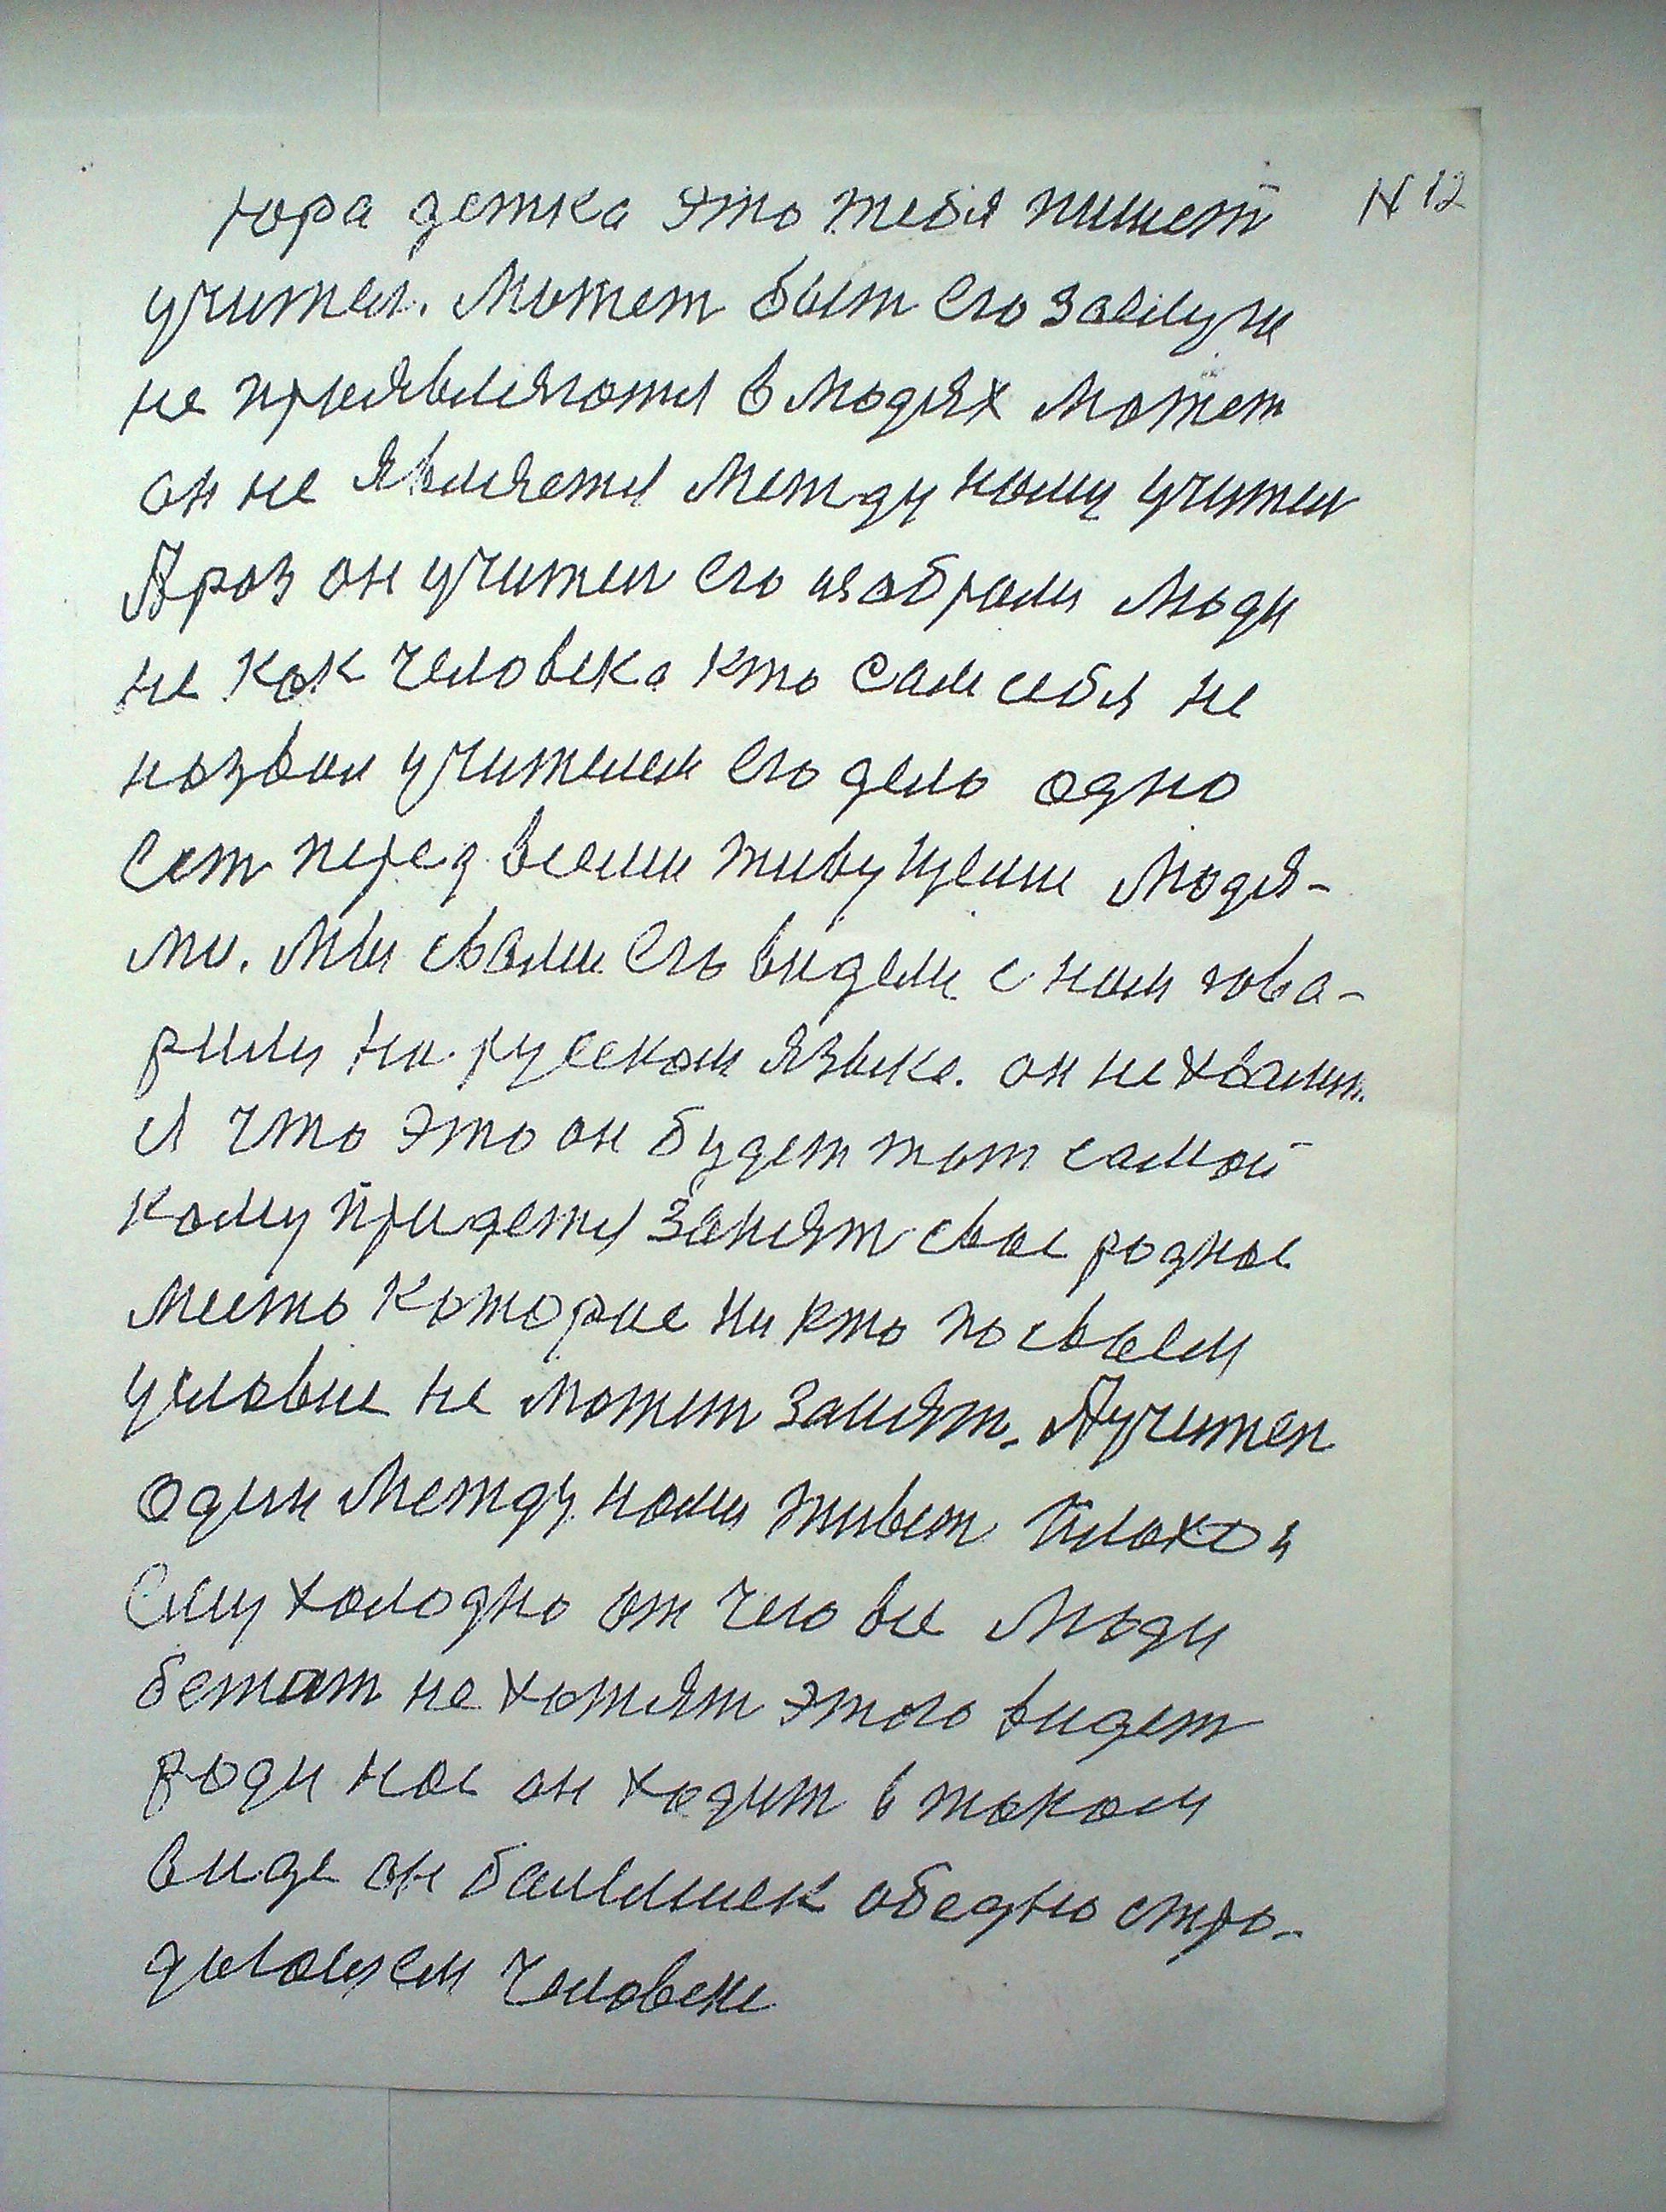 Юра детка это тебя пишет N 12
учител. Может быт его заслуги
не проявляются в людях может
он не является между нами учител
А раз он учител его избрали люди
не как человека кто сам себя не
назвал учителем его дело одно
ест перед всеми живущеми людя-
ми. Мы свами его видели с нами гова-
рили на русском языке. он не хвалит.
ся что это он будет тот самой
кому придется занят свое родное
место которые ни кто по своем
условие не может занят. А учител
один между нами живет плохо и
ему холодно от чего все люди
бежат не хотят этого видет
ради нас он ходит в таком
виде он балельшек обедно стра-
дающем человеке